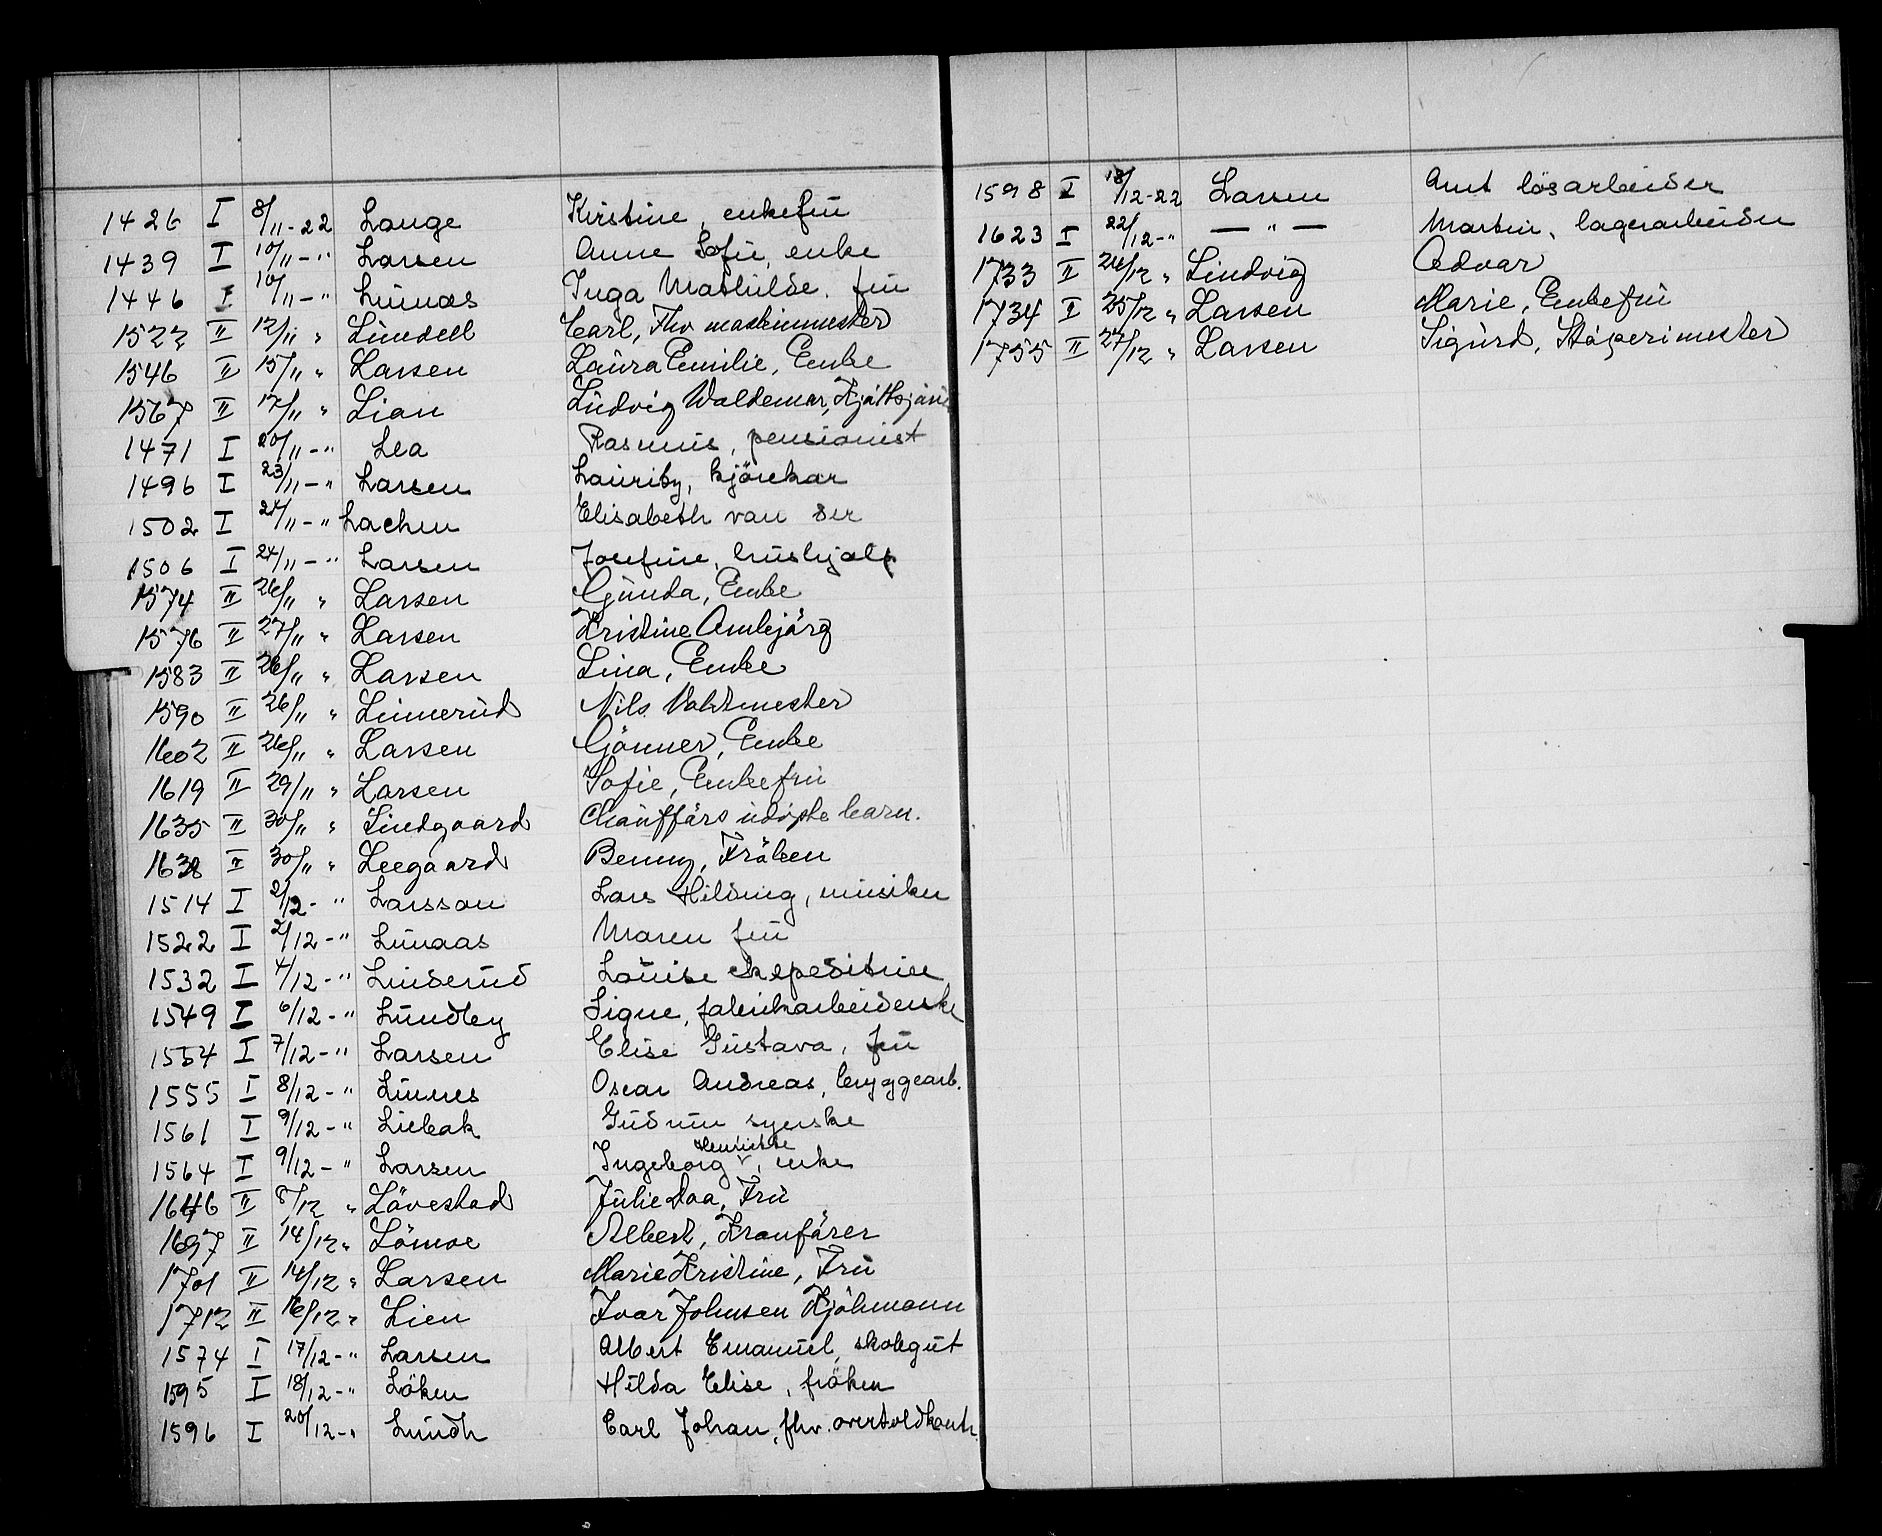 1426 I 8/11-22 Lange Kirstine, enkefru
1439 I 10/11-" Larsen Anne Sofie, enke
1446 I 10/11-" Lunaas Inga Mathilde, fru
1522 II 12/11 " Lundell Carl, Fhv maskinmester
1546 II 15/11 " Larsen Laura Emilie, Enke
1567 II 17/11 " Lian Ludvig Waldemar,
1471 I 20/11-" Lea Rasmus, pensionist
1496 I 23/11-" Larsen Lauritz, kjörekar
1502 I 24/11-" Lachen Elisabeth van der
1506 I 24/11-" Larsen Josefine, hushjælp
1574 II 26/11 " Larsen Gunda, Enke
1576 II 27/11 " Larsen Kristine Ambjörg
1583 II 26/11 " Larsen Lina, Enke
1590 II 26/11 " Linnerud Nils Vaktmester
1602 II 26/11 " Larsen Gönner, Enke
1619 II 29/11 " Larsen Sofie, Enkefru
1635 II 30/11 " Lindgaard Chaufförs udöpte barn.
1638 II 30/11 " Leegaard Benny, Fröken
1514 I 2/12-" Larsson Lars Hilding, musiker
1522 I 2/12-" Lunaas Maren fru
1532 I 4/12-" Linderud Louise ekspeditrice
1549 I 6/12-" Lundby Signe, fabrikarbeiderske
1554 I 7/12-" Larsen Elise Gustava, fru
1555 I 8/12-" Linnes Oscar Andreas, bryggearb.
1561 I 9/12-" Liebak Gudrun syerske
1564 I 9/12-" Larsen Ingeborg Henriette, enke
1646 II 8/12 " Lövestad Julie Daa, Fru
1697 II 14/12 " Lömoe Albert, Kranförer
1701 II 14/12 " Larsen Marie Kristine, Fru
1712 II 16/12 " Lien Ivar Johnsen Kjöbmann
1574 I 17/12-" Larsen Albert Emanuel, skolegut
1595 I 18/12-" Löken Hilda Elise, fröken
1596 I 20/12-" Lundh Carl Johan, fhv. overtoldkontr.
1598 I 18/12-22 Larsen Amt lösarbeider
1623 I 22/12-" — " — Martin, lagerarbeider
1733 II 24/12 " Lindvig Advar
1734 I 25/12 " Larsen Marie, Enkefru
1755 II 27/12 " Larsen Sigurd, Stöperimester